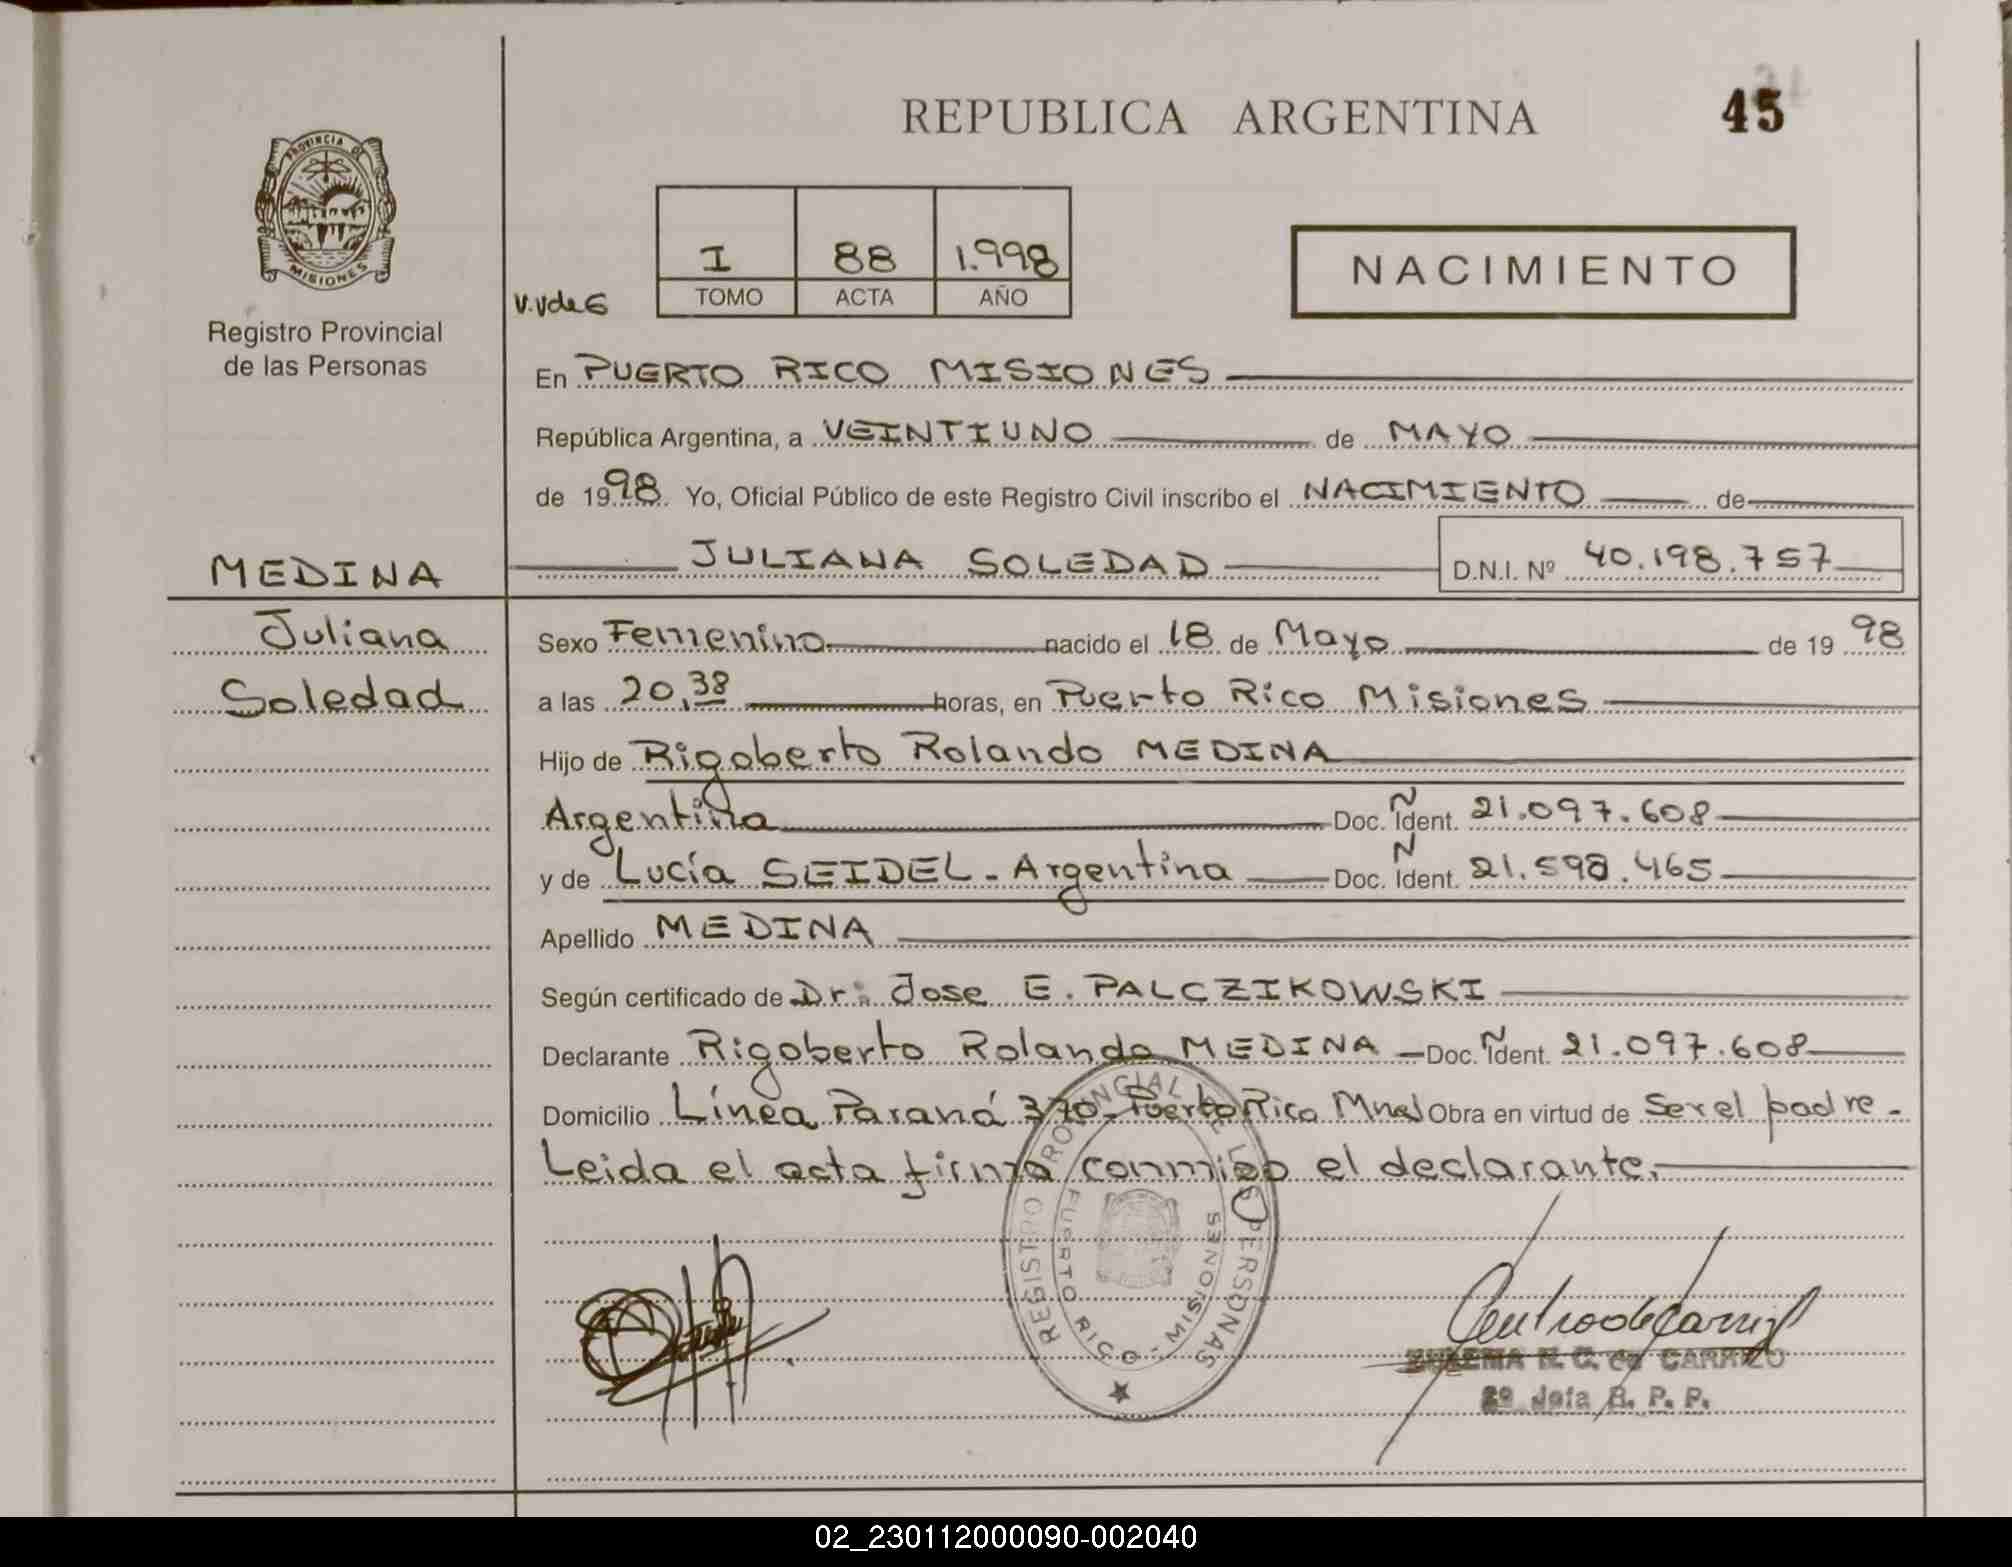 REPUBLICA ARGENTINA
45
PROVINCIA DE
MISIONES
Registro Provincial
de las Personas
I 88 1.998
TOMO ACTA AÑO
V.VdeG
NACIMIENTO
En PUERTO RICO MISIONES
República Argentina, a VEINTIUNO de MAYO
de 1998. Yo, Oficial Público de este Registro Civil inscribo el NACIMIENTO de
JULIANA SOLEDAD D.N.I. Nº 40.198.757
MEDINA
Juliana
Soledad
Sexo Femenino nacido el 18 de Mayo de 1998
a las 20,38 horas, en Puerto Rico Misiones
Hijo de Rigoberto Rolando MEDINA
Argentina Doc. Ñ Ident. 21.097.608
y de Lucía SEIDEL - Argentina Doc. N Ident. 21.598.465
Apellido MEDINA
Según certificado de Dr. Jose E. PALCZIKOWSKI
Declarante Rigoberto Rolando MEDINA - Doc. Ñ Ident. 21.097.608
Domicilio Línea Paraná 370 - Puerto Rico Mnes Obra en virtud de Ser el padre -
Leida el acta firma conmigo el declarante.
REGISTRO PROVINCIAL DE LAS PERSONAS
PUERTO RICO - MISIONES
N. C. de CARRIZO
2º Jefa R. P. P.
02_230112000090-002040